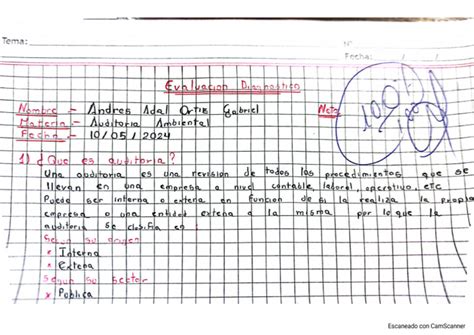 Tema:
N°
Fecha: / /
Evaluacion Diagnostico
Nombre :- Andres Adal Ortiz Gabriel
Nota
100
Materia :- Auditoria Ambiental
Fecha :- 10/05/2024
1) ¿Que es auditoria?
Una auditoria es una revision de todos los procedimientos que se
llevan en una empresa a nivel contable, laboral, operativo, etc
Puede ser interna o externa en funcion de si la realiza la propia
empresa o una entidad externa a la misma por lo que la
auditoria se clasifica en :
Segun su origen
* Interna
* Externa
Segun su sector
* Publica
Escaneado con CamScanner